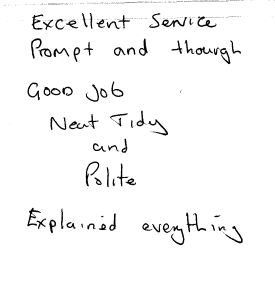 Excellent Service
Prompt and though
Good Job
Neat Tidy
and
Polite
Explained everything